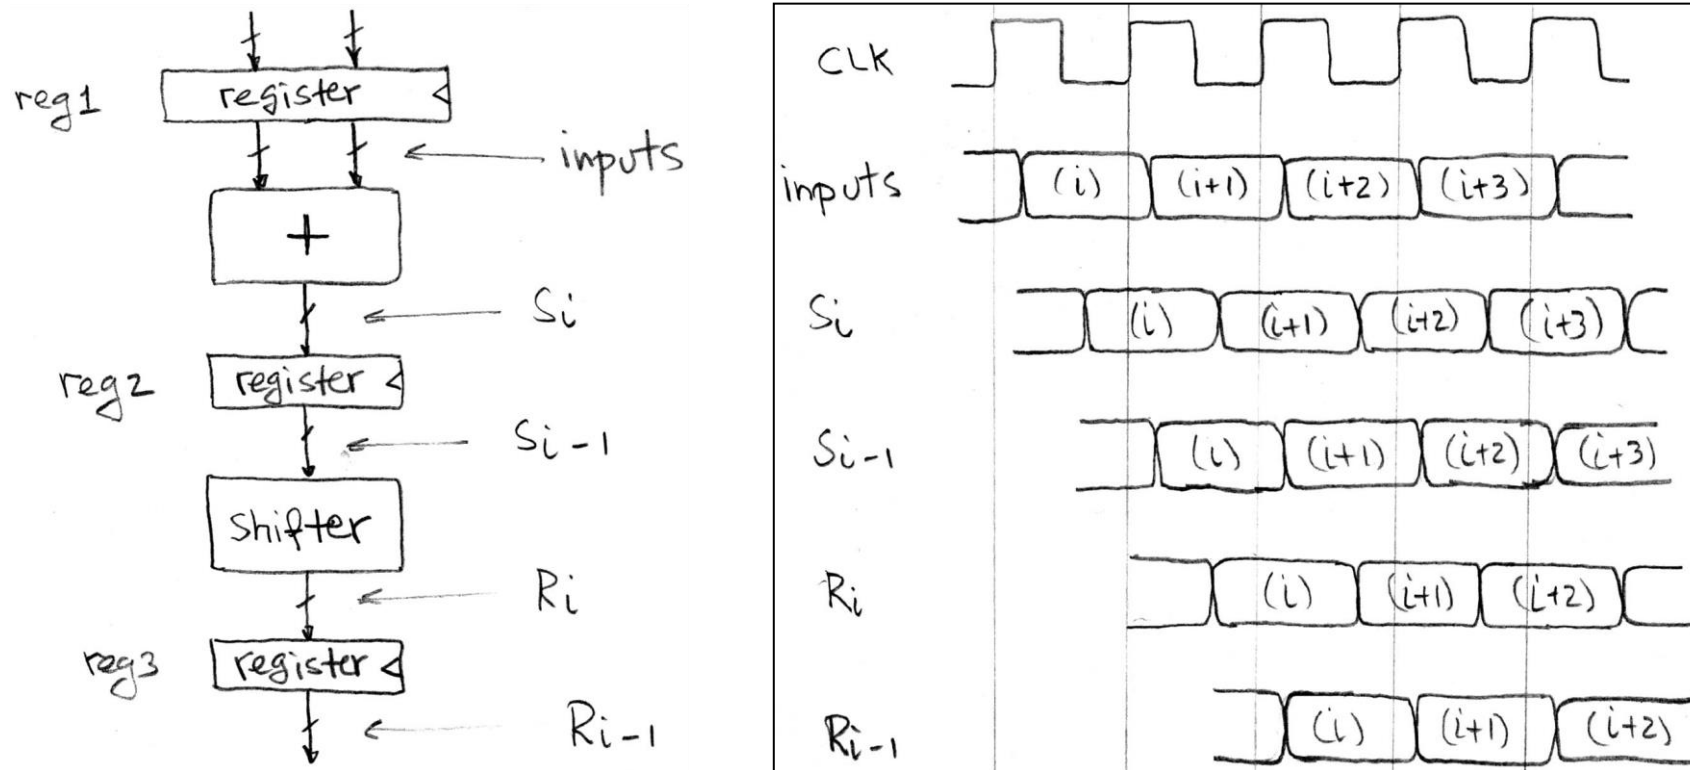 reg1
register
inputs
+
Si
reg2
register
Si-1
Shifter
Ri
reg3
register
Ri-1
CLK
inputs (i) (i+1) (i+2) (i+3)
Si (i) (i+1) (i+2) (i+3)
Si-1 (i) (i+1) (i+2) (i+3)
Ri (i) (i+1) (i+2)
Ri-1 (i) (i+1) (i+2)